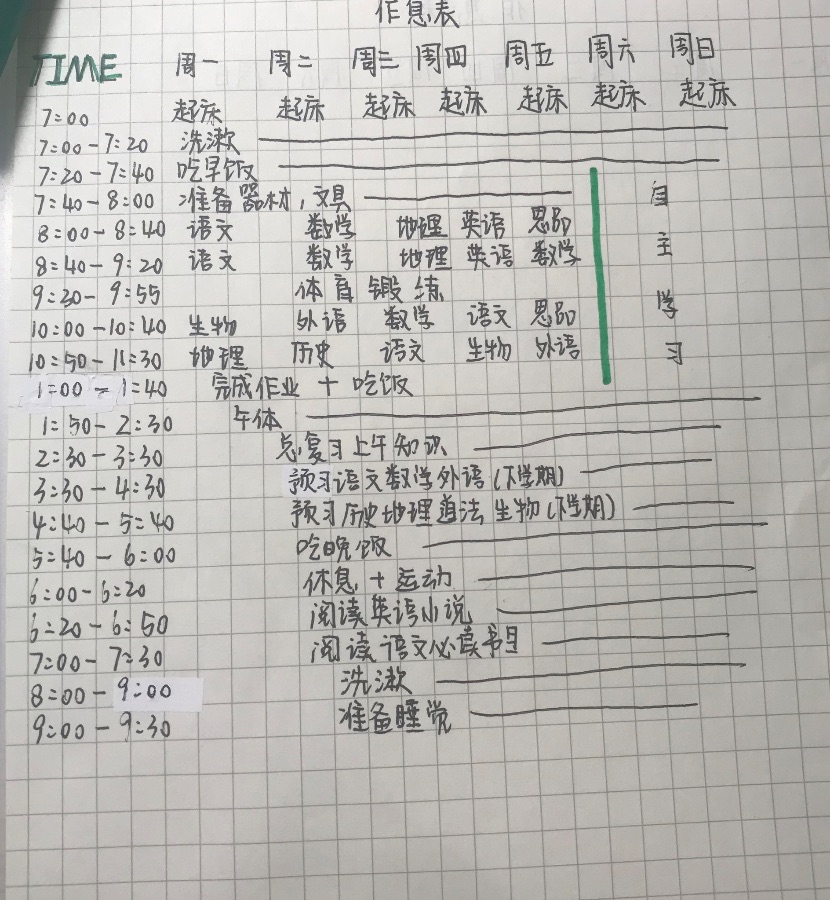 作息表
TIME 周一 周二 周三 周四 周五 周六 周日
7:00 起床 起床 起床 起床 起床 起床 起床
7:00-7:20 洗漱
7:20-7:40 吃早饭
7:40-8:00 准备器材,文具
8:00-8:40 语文 数学 地理 英语 思品
8:40-9:20 语文 数学 地理 英语 数学
9:20-9:55 体育锻炼
10:00-10:40 生物 外语 数学 语文 思品
10:50-11:30 地理 历史 语文 生物 外语
自主学习
1:00-1:40 完成作业+吃饭
1:50-2:30 午休
2:30-3:30 总复习上午知识
3:30-4:30 预习语文数学外语(下学期)
4:40-5:40 预习历史地理道法生物(下学期)
5:40-6:00 吃晚饭
6:00-6:20 休息+运动
6:20-6:50 阅读英语小说
7:00-7:30 阅读语文必读书目
8:00-9:00 洗漱
9:00-9:30 准备睡觉